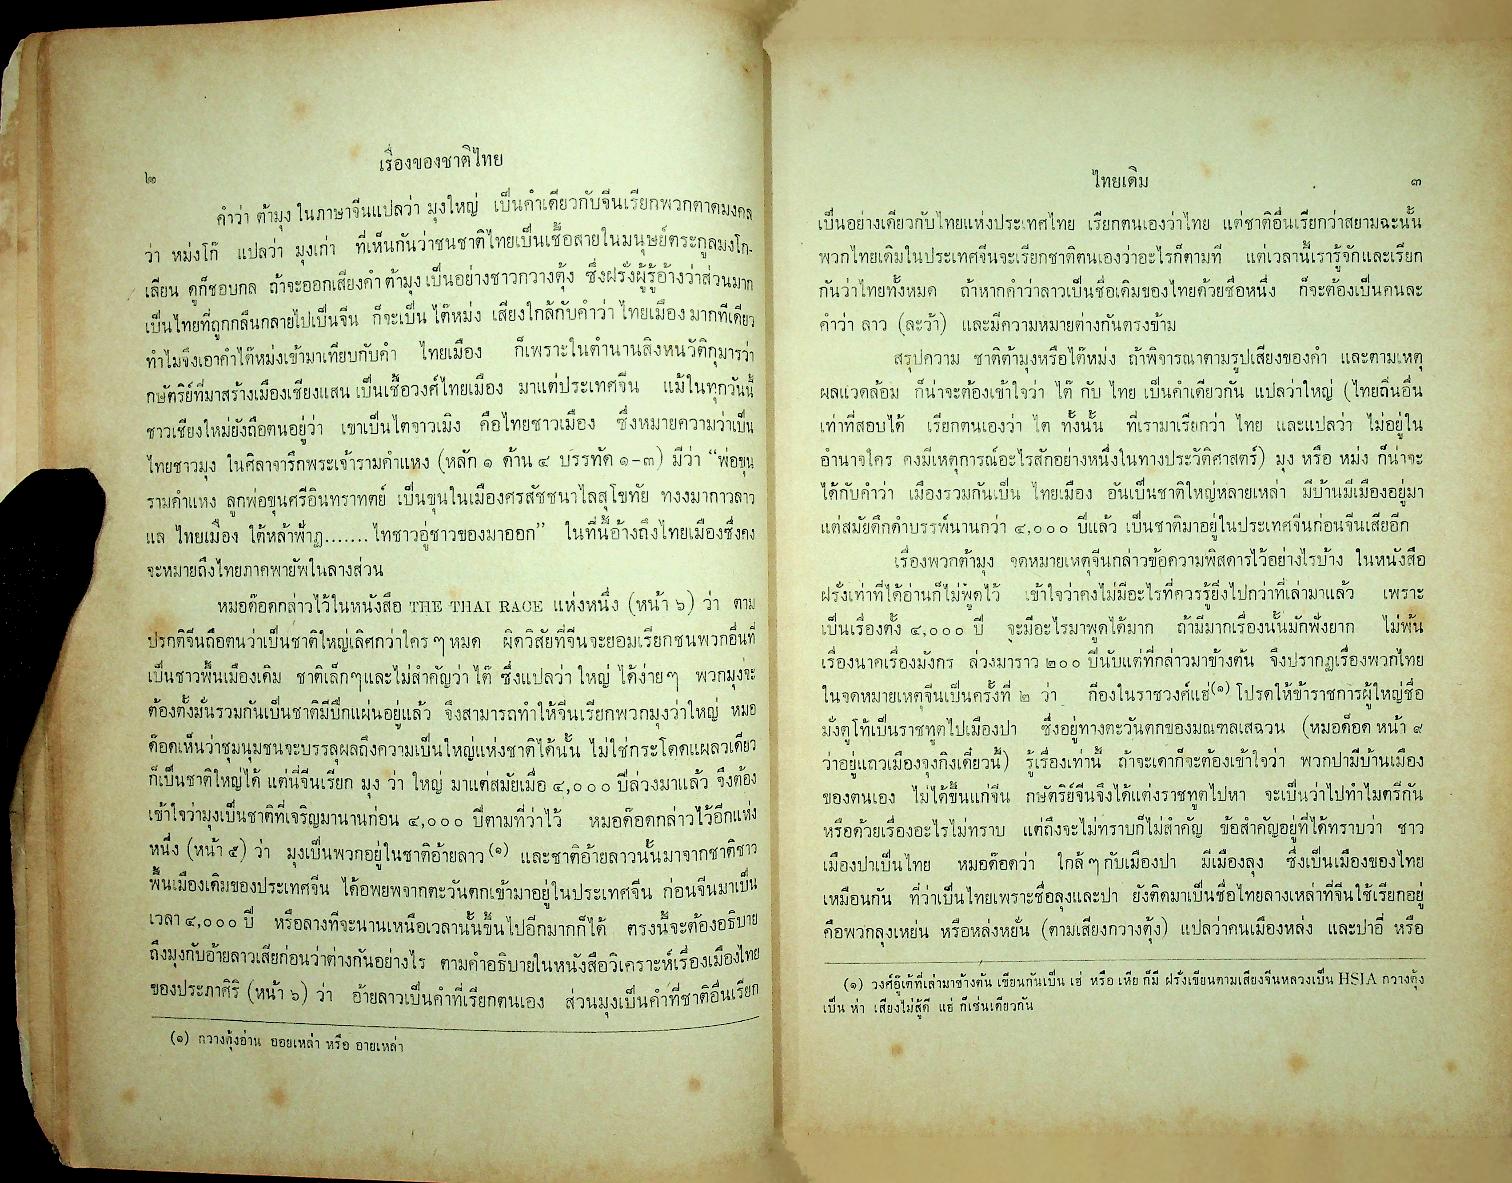 ๒
เรื่องของชาติไทย
คำว่า ต้ามุง ในภาษาจีนแปลว่า มุงใหญ่ เป็นคำเดียวกับจีนเรียกพวกตาดมงคล
ว่า หม่งโก๊ แปลว่า มุงเก่า ที่เห็นกันว่าชนชาติไทยเป็นเชื้อสายในมนุษย์ตระกูลมงโก-
เลียน ดูก็ชอบกล ถ้าจะออกเสียงคำ ต้ามุง เป็นอย่างชาวกวางตุ้ง ซึ่งฝรั่งผู้รู้อ้างว่าส่วนมาก
เป็นไทยที่ถูกกลืนกลายไปเป็นจีน ก็จะเป็น ไต๊หม่ง เสียงใกล้กับคำว่า ไทยเมือง มากทีเดียว
ทำไมจึงเอาคำไต๊หม่งเข้ามาเทียบกับคำ ไทยเมือง ก็เพราะในตำนานสิงหนวัติกุมารว่า
กษัตริย์ที่มาสร้างเมืองเชียงแสน เป็นเชื้อวงศ์ไทยเมือง มาแต่ประเทศจีน แม้ในทุกวันนี้
ชาวเชียงใหม่ยังถือตนอยู่ว่า เขาเป็นไตจาวเมิง คือไทยชาวเมือง ซึ่งหมายความว่าเป็น
ไทยชาวมุง ในศิลาจารึกพระเจ้ารามคำแหง (หลัก ๑ ด้าน ๔ บรรทัด ๑-๓) มีว่า “พ่อขุน
รามคำแหง ลูกพ่อขุนศรีอินทราทตย์ เป็นขุนในเมืองศรสัชชนาไลสุโขทัย ทงงมากาวลาว
แล ไทยเมือง ใต้หล้าฟ้าฏ.......ไทชาวอู่ชาวของมาออก” ในที่นี้อ้างถึงไทยเมืองซึ่งคง
จะหมายถึงไทยภาคพายัพในลางส่วน
หมอด๊อดกล่าวไว้ในหนังสือ THE THAI RACE แห่งหนึ่ง (หน้า ๖) ว่า ตาม
ปรกติจีนถือตนว่าเป็นชาติใหญ่เลิศกว่าใคร ๆ หมด ผิดวิสัยที่จีนจะยอมเรียกชนพวกอื่นที่
เป็นชาวพื้นเมืองเดิม ชาติเล็กๆและไม่สำคัญว่า ไต๊ ซึ่งแปลว่า ใหญ่ ได้ง่ายๆ พวกมุงจะ
ต้องตั้งมั่นรวมกันเป็นชาติมีปึกแผ่นอยู่แล้ว จึงสามารถทำให้จีนเรียกพวกมุงว่าใหญ่ หมอ
ด๊อดเห็นว่าชุมนุมชนจะบรรลุผลถึงความเป็นใหญ่แห่งชาติได้นั้น ไม่ใช่กระโดดแผลวเดียว
ก็เป็นชาติใหญ่ได้ แต่นี่จีนเรียก มุง ว่า ใหญ่ มาแต่สมัยเมื่อ ๔,๐๐๐ ปีล่วงมาแล้ว จึงต้อง
เข้าใจว่ามุงเป็นชาติที่เจริญมานานก่อน ๔,๐๐๐ ปีตามที่ว่าไว้ หมอด๊อดกล่าวไว้อีกแห่ง
หนึ่ง (หน้า ๕) ว่า มุงเป็นพวกอยู่ในชาติอ้ายลาว(๑) และชาติอ้ายลาวนั้นมาจากชาติชาว
พื้นเมืองเดิมของประเทศจีน ได้อพยพจากตะวันตกเข้ามาอยู่ในประเทศจีน ก่อนจีนมาเป็น
เวลา ๔,๐๐๐ ปี หรือลางทีจะนานเหนือเวลานั้นขึ้นไปอีกมากก็ได้ ตรงนี้จะต้องอธิบาย
ถึงมุงกับอ้ายลาวเสียก่อนว่าต่างกันอย่างไร ตามคำอธิบายในหนังสือวิเคราะห์เรื่องเมืองไทย
ของประภาศิริ (หน้า ๖) ว่า อ้ายลาวเป็นคำที่เรียกตนเอง ส่วนมุงเป็นคำที่ชาติอื่นเรียก
(๑) กวางตุ้งอ่าน ออยเหล่า หรือ อายเหล่า
ไทยเดิม
๓
เป็นอย่างเดียวกับไทยแห่งประเทศไทย เรียกตนเองว่าไทย แต่ชาติอื่นเรียกว่าสยามฉะนั้น
พวกไทยเดิมในประเทศจีนจะเรียกชาติตนเองว่าอะไรก็ตามที แต่เวลานี้เรารู้จักและเรียก
กันว่าไทยทั้งหมด ถ้าหากคำว่าลาวเป็นชื่อเดิมของไทยด้วยชื่อหนึ่ง ก็จะต้องเป็นคนละ
คำว่า ลาว (ละว้า) และมีความหมายต่างกันตรงข้าม
สรุปความ ชาติต้ามุงหรือไต๊หม่ง ถ้าพิจารณาตามรูปเสียงของคำ และตามเหตุ
ผลแวดล้อม ก็น่าจะต้องเข้าใจว่า ไต๊ กับ ไทย เป็นคำเดียวกัน แปลว่าใหญ่ (ไทยถิ่นอื่น
เท่าที่สอบได้ เรียกตนเองว่า ไต ทั้งนั้น ที่เรามาเรียกว่า ไทย และแปลว่า ไม่อยู่ใน
อำนาจใคร คงมีเหตุการณ์อะไรสักอย่างหนึ่งในทางประวัติศาสตร์) มุง หรือ หม่ง ก็น่าจะ
ได้กับคำว่า เมืองรวมกันเป็น ไทยเมือง อันเป็นชาติใหญ่หลายเหล่า มีบ้านมีเมืองอยู่มา
แต่สมัยดึกดำบรรพ์นานกว่า ๔,๐๐๐ ปีแล้ว เป็นชาติมาอยู่ในประเทศจีนก่อนจีนเสียอีก
เรื่องพวกต้ามุง จดหมายเหตุจีนกล่าวข้อความพิสดารไว้อย่างไรบ้าง ในหนังสือ
ฝรั่งเท่าที่ได้อ่านก็ไม่พูดไว้ เข้าใจว่าคงไม่มีอะไรที่ควรรู้ยิ่งไปกว่าที่เล่ามาแล้ว เพราะ
เป็นเรื่องตั้ง ๔,๐๐๐ ปี จะมีอะไรมาพูดได้มาก ถ้ามีมากเรื่องนั้นมักฟังยาก ไม่พ้น
เรื่องนาคเรื่องมังกร ล่วงมาราว ๒๐๐ ปีนับแต่ที่กล่าวมาข้างต้น จึงปรากฏเรื่องพวกไทย
ในจดหมายเหตุจีนเป็นครั้งที่ ๒ ว่า กีองในราชวงศ์แฮ่(๑) โปรดให้ข้าราชการผู้ใหญ่ชื่อ
มั่งตูโท้เป็นราชทูตไปเมืองปา ซึ่งอยู่ทางตะวันตกของมณฑลเสฉวน (หมอด็อด หน้า ๙
ว่าอยู่แถวเมืองจุงกิงเดี๋ยวนี้) รู้เรื่องเท่านี้ ถ้าจะเดาก็จะต้องเข้าใจว่า พวกปามีบ้านเมือง
ของตนเอง ไม่ได้ขึ้นแก่จีน กษัตริย์จีนจึงได้แต่งราชทูตไปหา จะเป็นว่าไปทำไมตรีกัน
หรือด้วยเรื่องอะไรไม่ทราบ แต่ถึงจะไม่ทราบก็ไม่สำคัญ ข้อสำคัญอยู่ที่ได้ทราบว่า ชาว
เมืองปาเป็นไทย หมอด๊อดว่า ใกล้ ๆ กับเมืองปา มีเมืองลุง ซึ่งเป็นเมืองของไทย
เหมือนกัน ที่ว่าเป็นไทยเพราะชื่อลุงและปา ยังติดมาเป็นชื่อไทยลางเหล่าที่จีนใช้เรียกอยู่
คือพวกลุงเหย่น หรือหล่งหยั่น (ตามเสียงกวางตุ้ง) แปลว่าคนเมืองหล่ง และปาอี่ หรือ
(๑) วงศ์อู๊เต้ที่เล่ามาข้างต้น เขียนกันเป็น เฮ่ หรือ เหีย ก็มี ฝรั่งเขียนตามเสียงจีนหลวงเป็น HSIA กวางตุ้ง
เป็น ห่า เสียงไม่สู้ดี แฮ่ ก็เช่นเดียวกัน